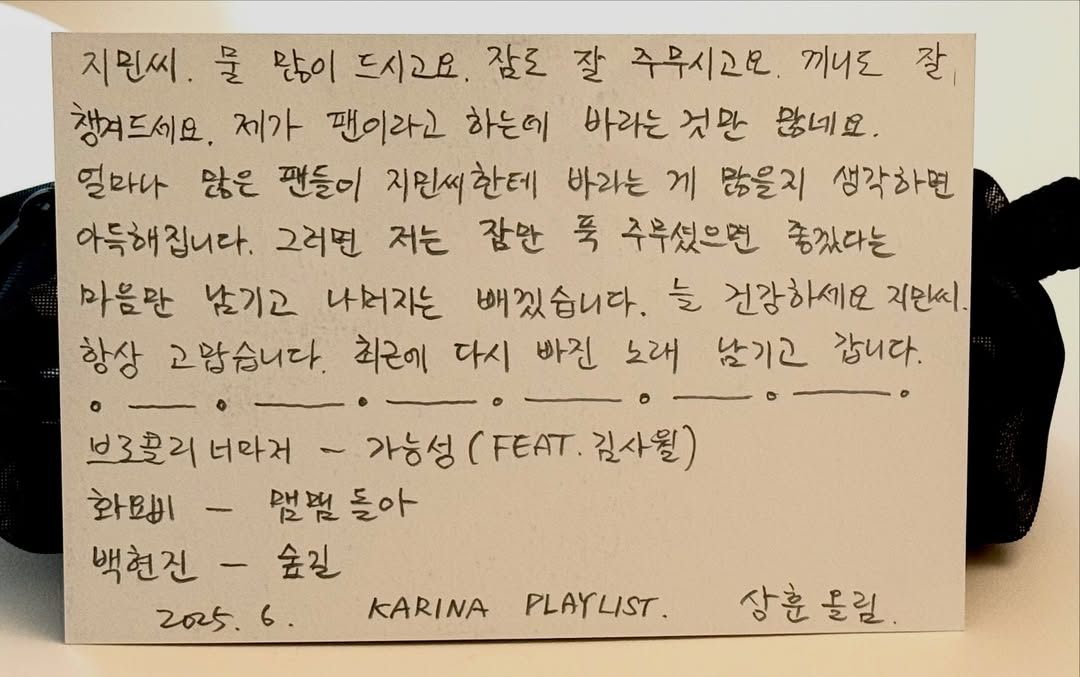 지민씨. 물 많이 드시고요. 잠도 잘 주무시고요. 끼니도 잘
챙겨드세요. 제가 팬이라고 하는데 바라는 것만 많네요.
얼마나 많은 팬들이 지민씨한테 바라는 게 많을지 생각하면
아득해집니다. 그러면 저는 잠만 푹 주무셨으면 좋겠다는
마음만 남기고 나머지는 빼겠습니다. 늘 건강하세요 지민씨.
항상 고맙습니다. 최근에 다시 빠진 노래 남기고 갑니다.
브로콜리너마저 - 가능성 (FEAT. 김사월)
화요비 - 맴맴돌아
백현진 - 숲길
2025. 6. KARINA PLAYLIST. 상훈 올림.